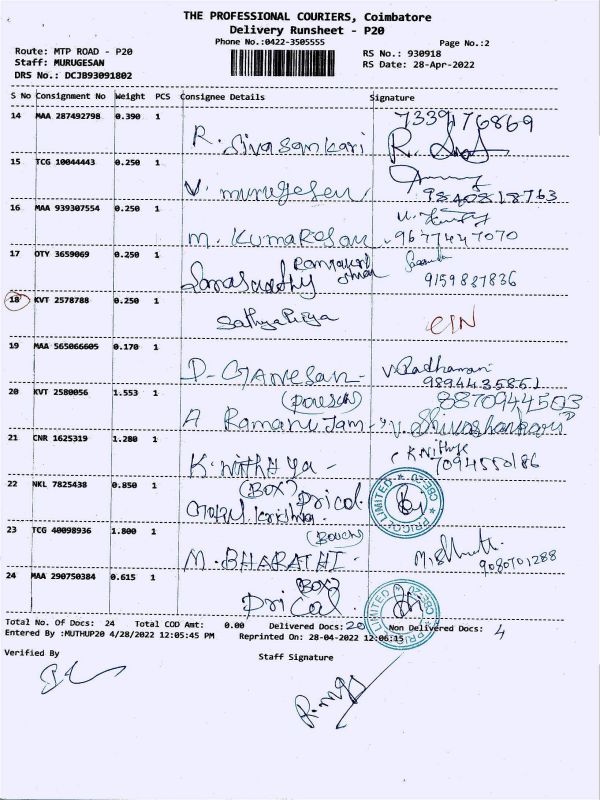 THE PROFESSIONAL COURIERS, Coimbatore
Delivery Runsheet - P20
Phone No.:0422-3505555 Page No.:2
Route: MTP ROAD - P20 RS No.: 930918
Staff: MURUGESAN RS Date: 28-Apr-2022
DRS No.: DCJB93091802
S No Consignment No Weight PCS Consignee Details Signature
14 MAA 287492798 0.390 1 7339176869
R. Sivasankari
15 TCG 10044443 0.250 1
V. murugesan 9840818763
16 MAA 939307554 0.250 1
M. Kumaresan 9677447070
17 OTY 3659069 0.250 1
9159837836
18 KVT 2578788 0.250 1
Sathyapriya
19 MAA 565066605 0.170 1
D. GANESAN - V. Radhamani
9894435851
20 KVT 2580056 1.553 1 (pouch) 8870944503
A Ramanujam - V. Shivashankari
21 CNR 1625319 1.280 1 K Nithya
K. Nithya - 7094550186
22 NKL 7825438 0.850 1 (BOX) Pricol
Gokul Krishna. PRICOL LIMITED
23 TCG 40098936 1.800 1 (Pouch)
M. BHARATHI - 9080701288
24 MAA 290750384 0.615 1 (BOX)
Pricol PRICOL LIMITED
Total No. Of Docs: 24 Total COD Amt: 0.00 Delivered Docs: 20 Non Delivered Docs: 4
Entered By :MUTHUP20 4/28/2022 12:05:45 PM Reprinted On: 28-04-2022 12:06:15
Verified By Staff Signature